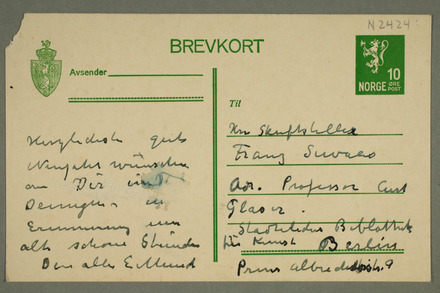 N 2424
BREVKORT
Avsender
10
NORGE ØRE
POST
Til
Herzlichste gute
Neujahrswünsche
an Dir und
Deinigen in
Erinnerung um
alte schöne Stunden
Dein alter E. Munch
Hr Skriftsteller
Franz Servaes
Adr. Professor Curt
Glaser.
Staatliches Bibliothek
für Kunst Berlin
Prinz Albrechtstr. 9